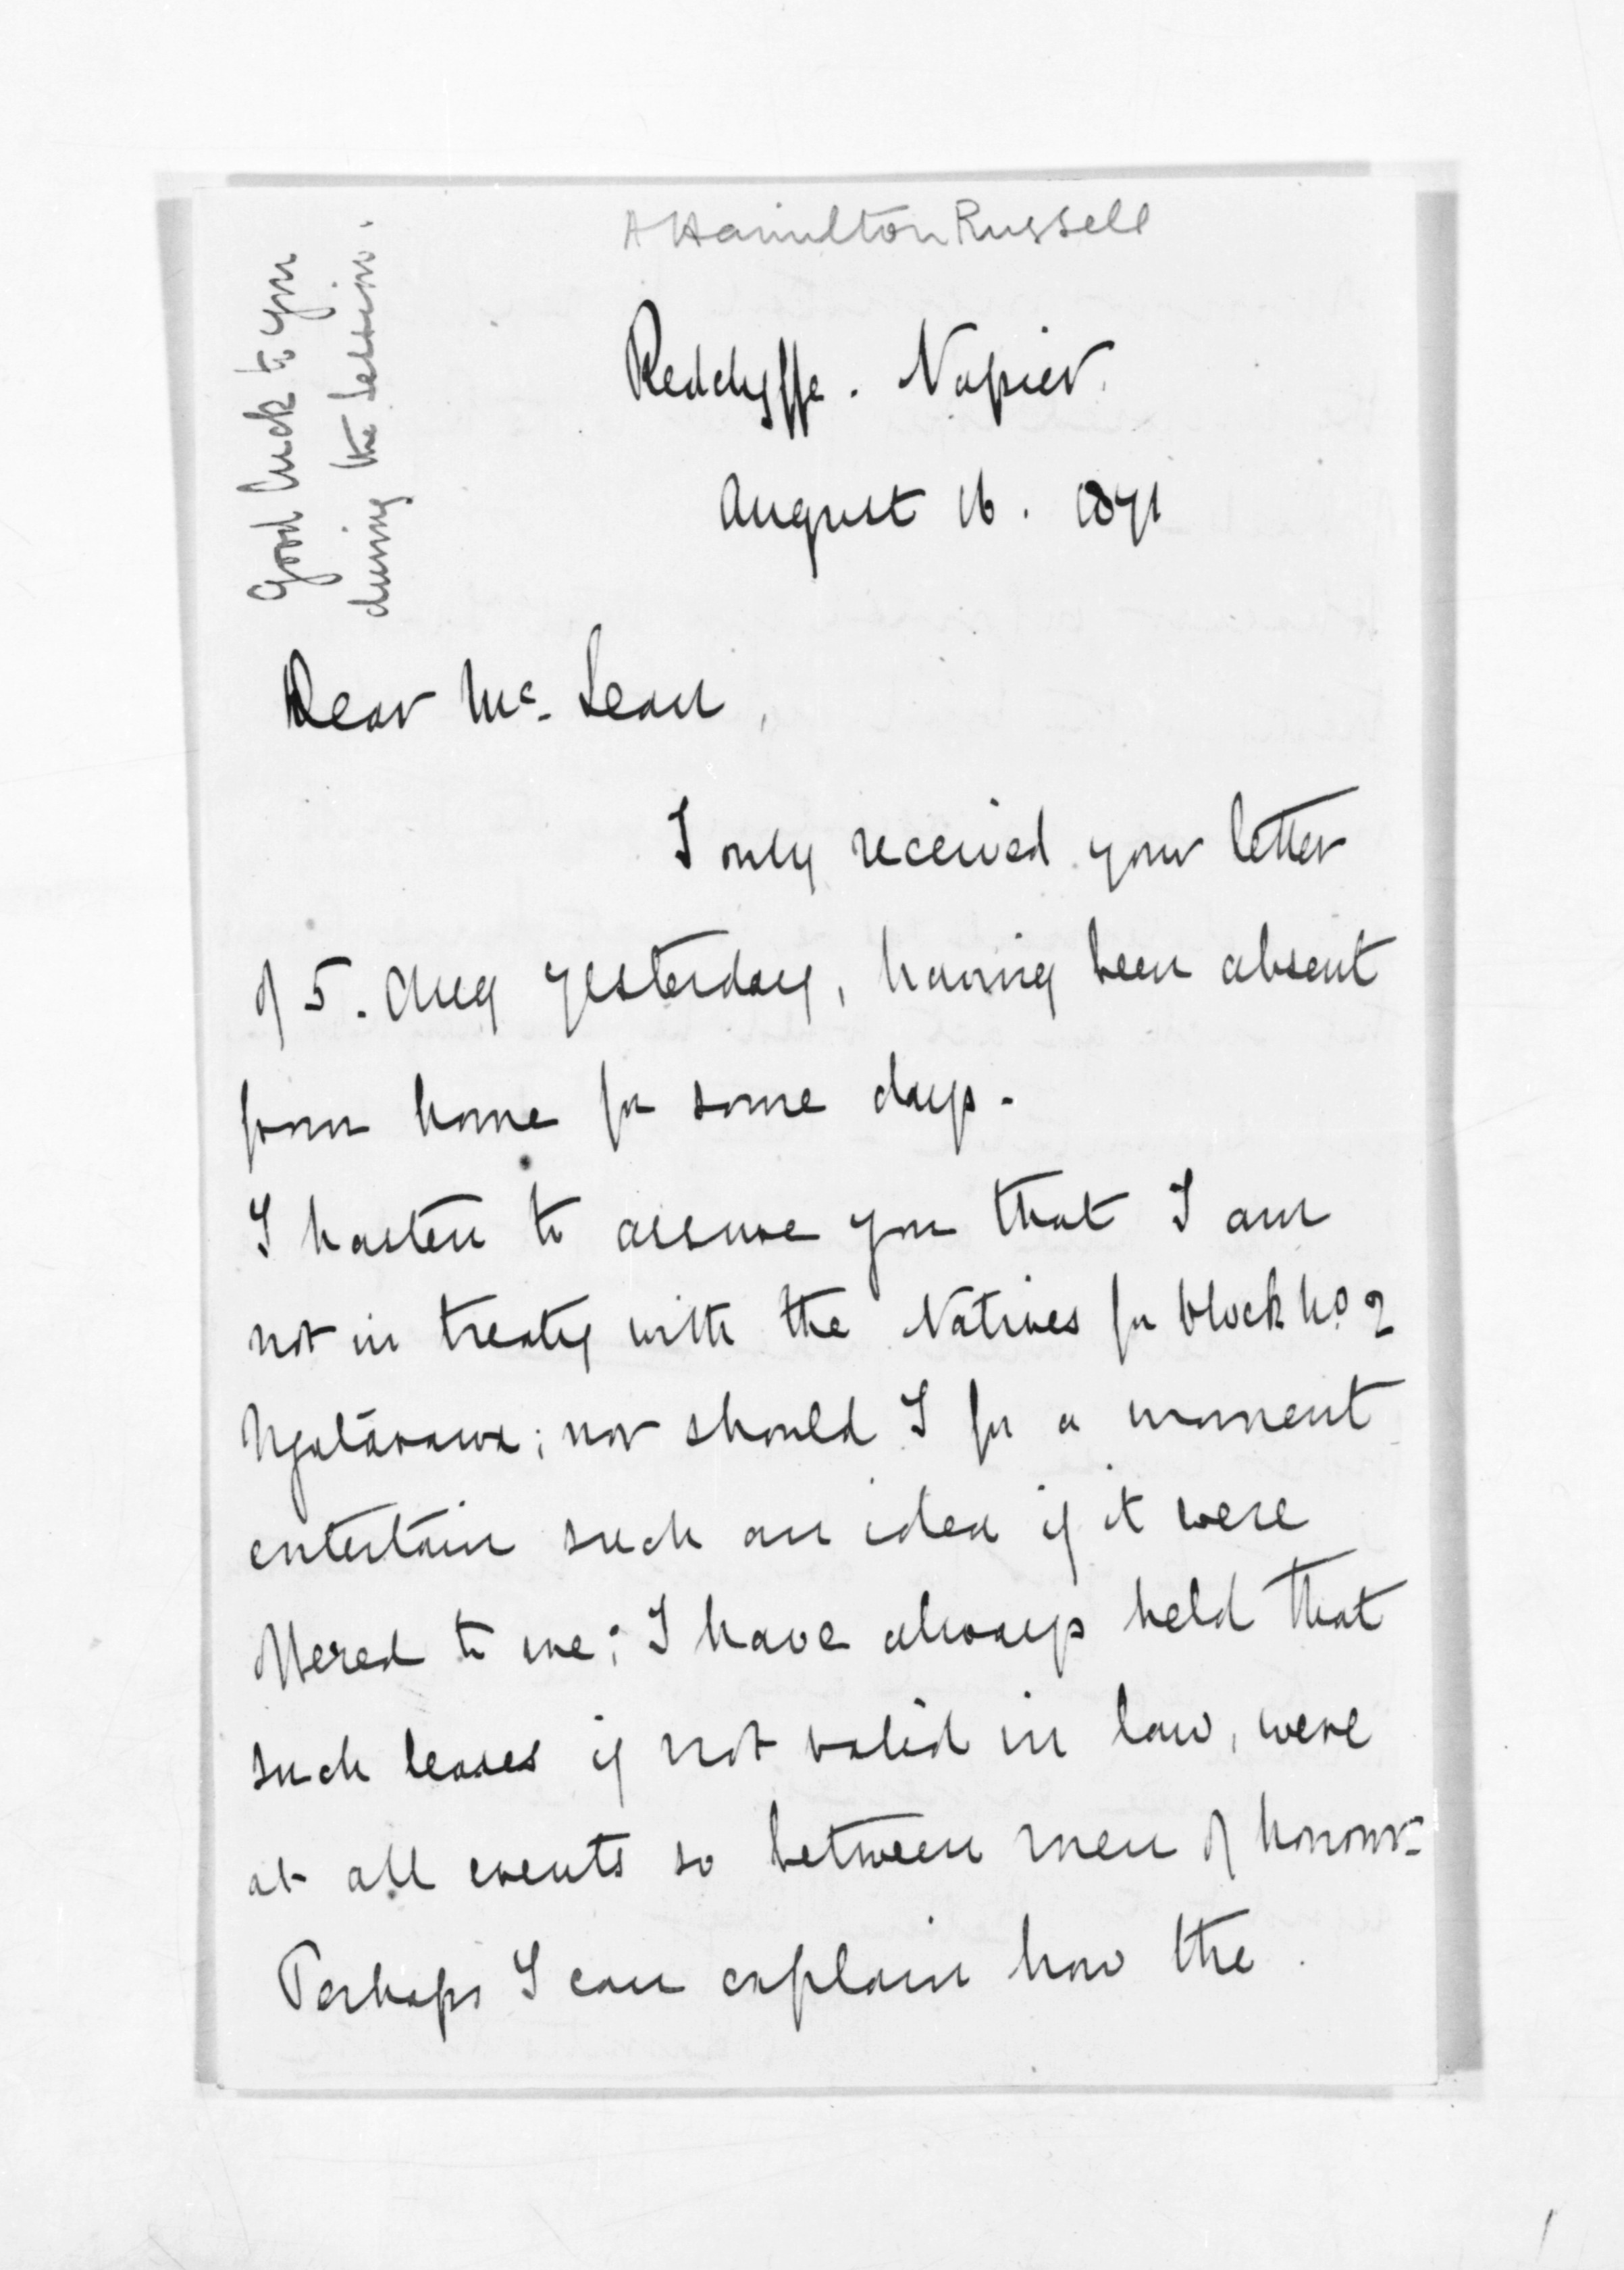 A Hamilton Russell
Good luck to you
during the Session.
Redclyffe. Napier.
August 16. 1871
Dear Mc. Lean,
I only received your letter
of 5. Aug yesterday, having been absent
from home for some days.
I hasten to assure you that I am
not in treaty with the Natives for block No. 2
Ngatarawa; nor should I for a moment
entertain such an idea if it were
offered to me; I have always held that
such leases if not valid in law, were
at all events so between men of honour.
Perhaps I can explain how the